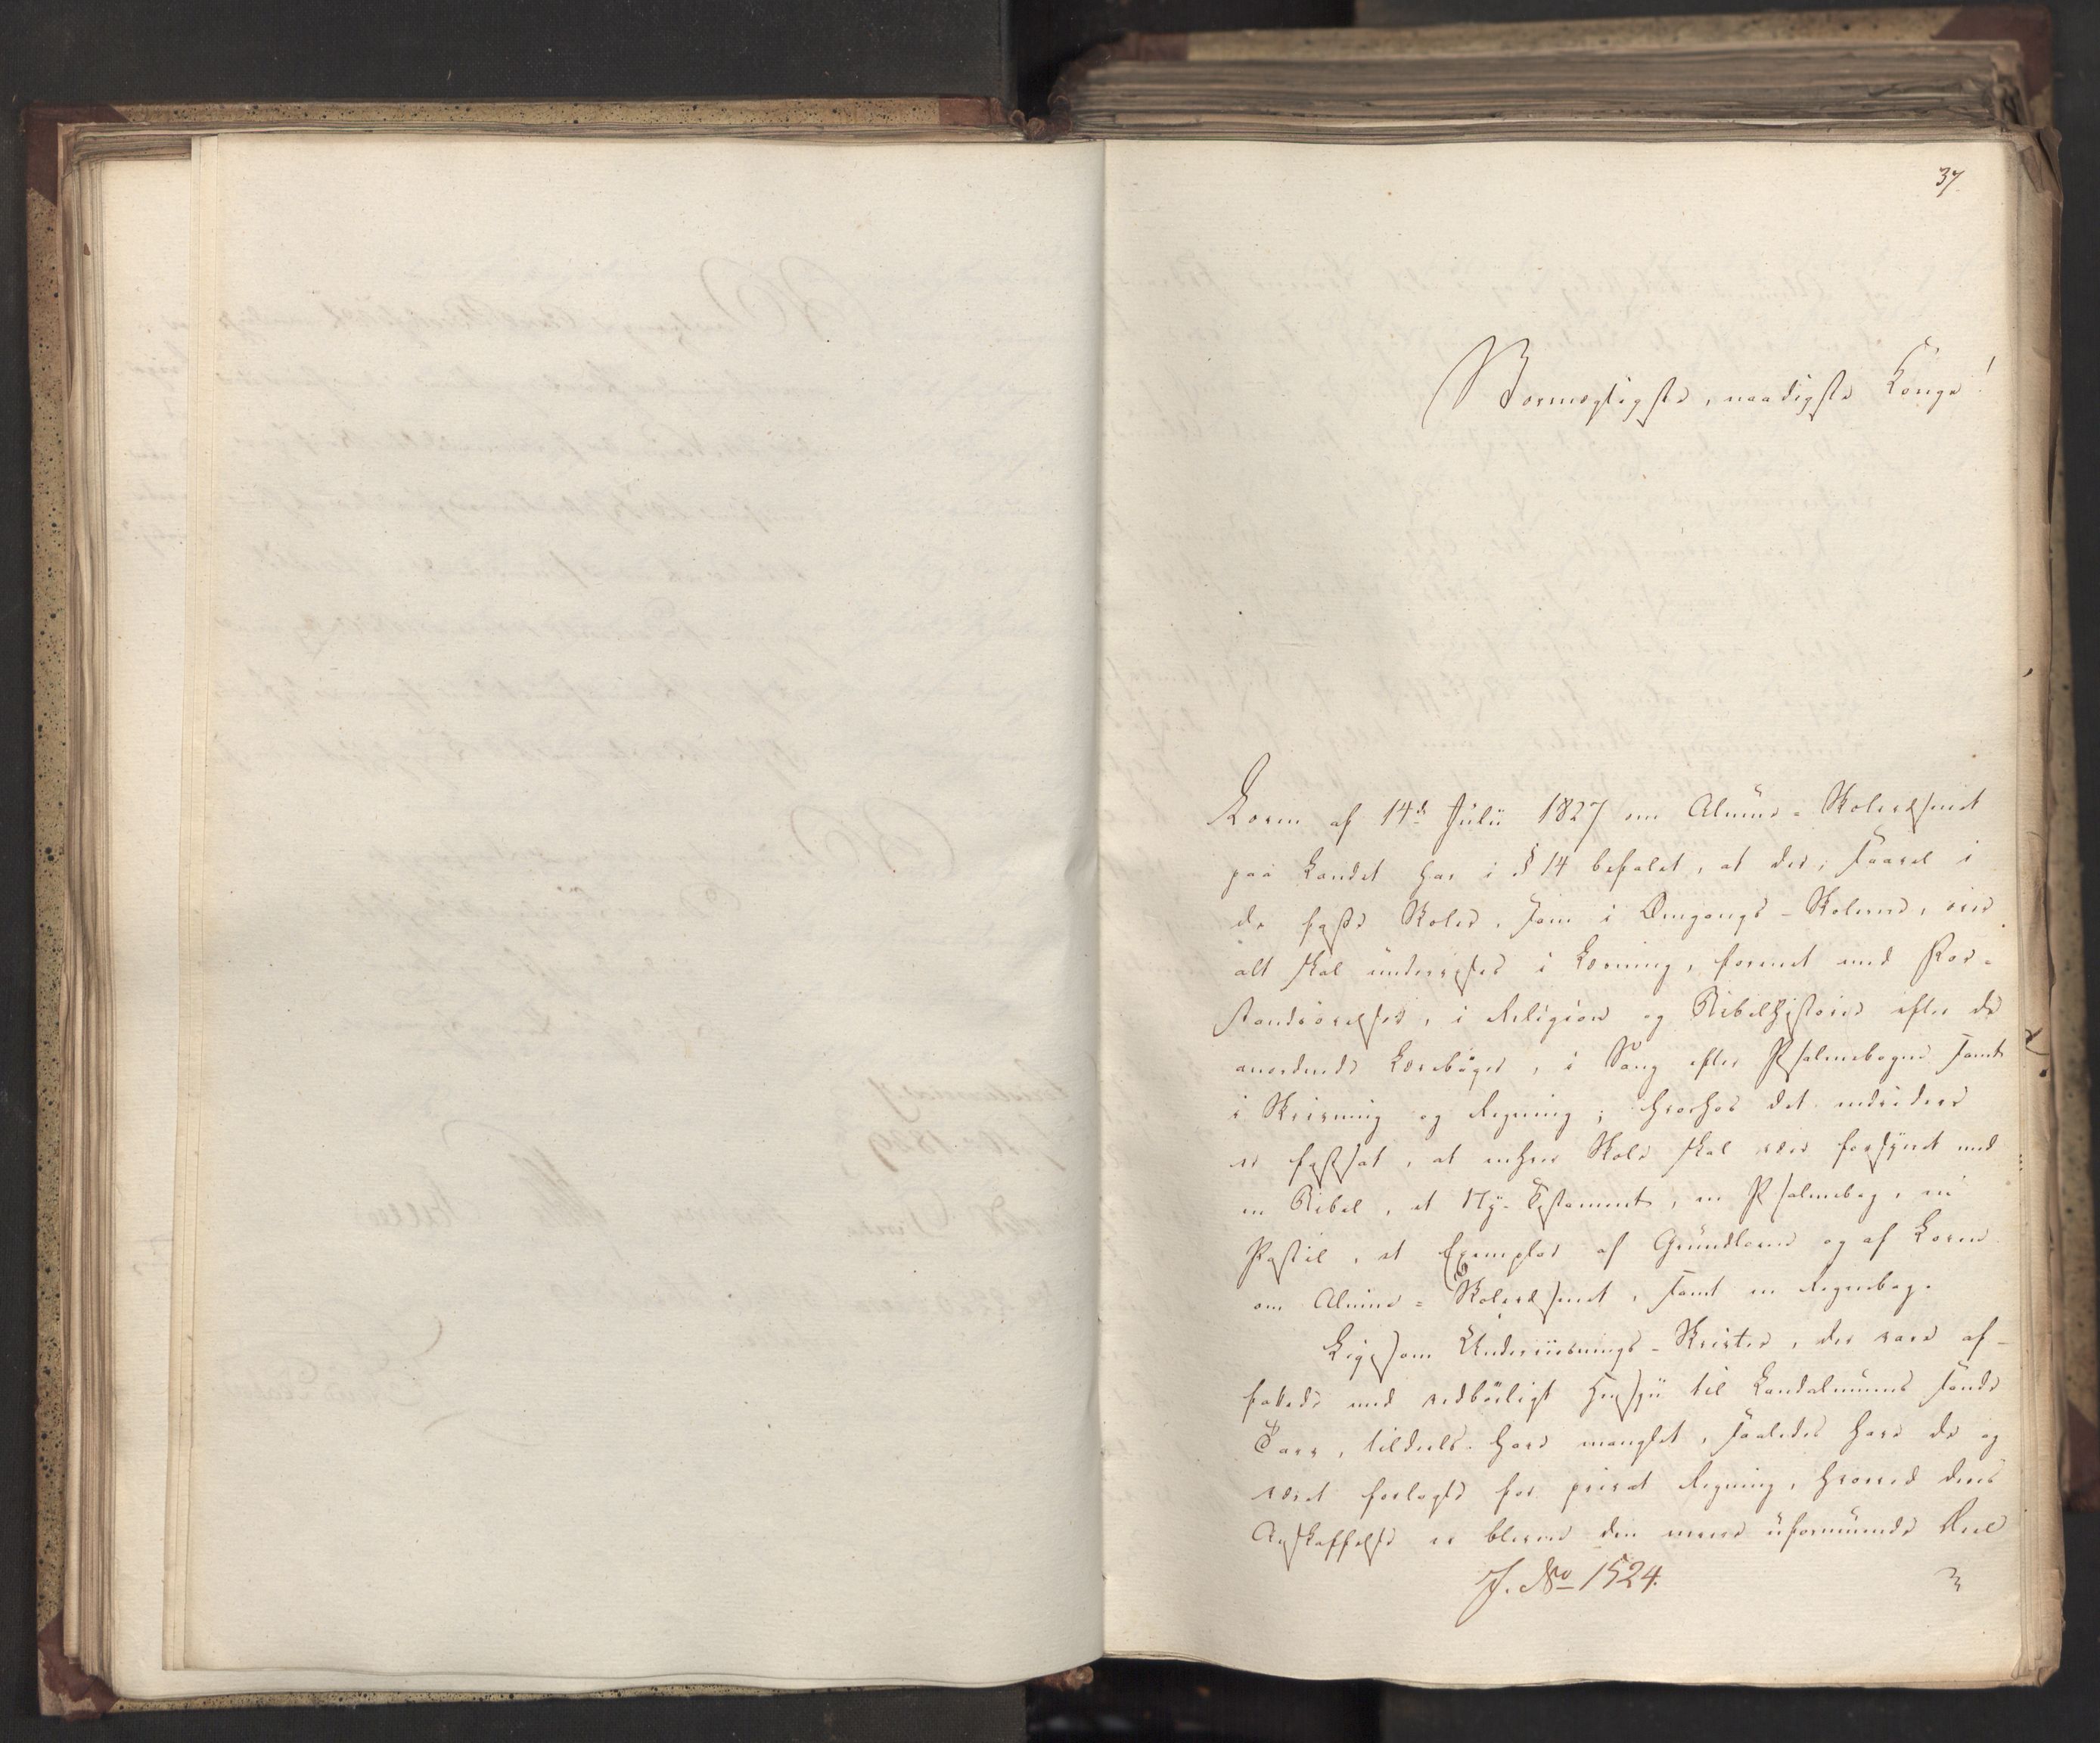 37
Stormægtigste, naadigste Konge!
Loven af 14de Julii 1827 om Almue-Skolevæsenet
paa Landet har i § 14 befalet, at der, saavel i
de faste Skoler, som i Omgangs-Skolerne, over
alt skal underviises i Læsning, forenet med For-
standsövelser, i Religion og Bibelhistorie efter de
anordnede Lærebøger, i Sang efter Psalmebogen samt
i Skrivning og Regning; hvorhos det endvidere
er fastsat, at enhver Skole skal være forsynet med
en Bibel, et Ny-Testament, en Psalmebog, en
Postil, et Exemplar af Grundloven og af Loven
om Almue-Skolevæsenet, samt en Regnebog.
Ligesom Underviisnings-Skrifter, der vare af-
fattede med vedbörligt Hensyn til Landalmuens sande
Tarv, tildeels have manglet, saaledes have de og
været forlagte for privat Regning, hvorved deres
Anskaffelse er bleven den mere uformuende Deel
J. No 1524.